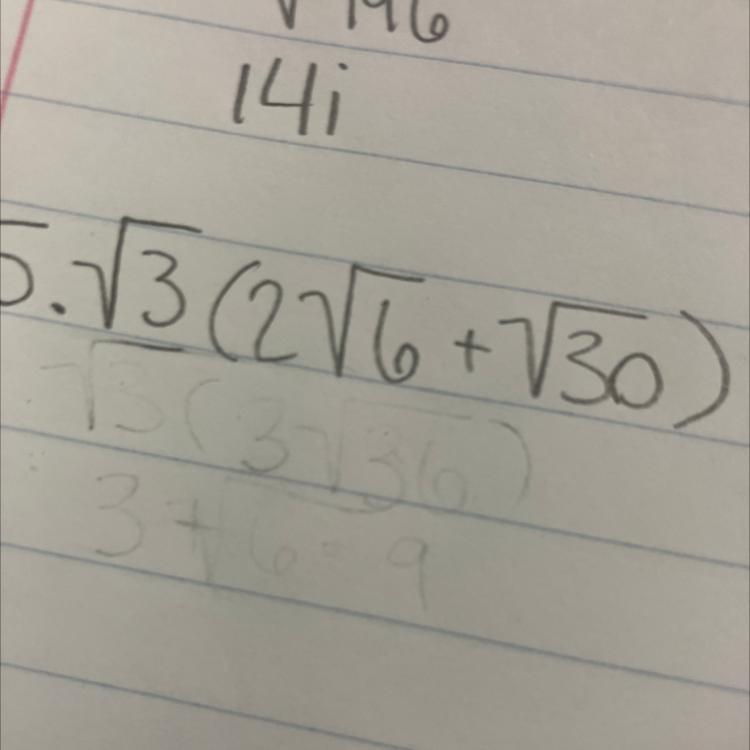 √196
14i
5. √3 (2√6 + √30)
√3 (3√36)
3 + √6 = 9